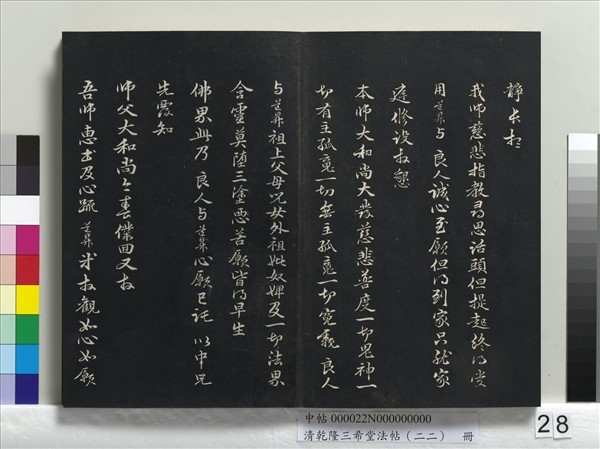 靜 长 於
我師慈悲指教尋思話頭但提起終日受
用孟頫与 良人誠心至願但得到家只就家
建修設 懇
本師大和尚大發慈悲普度一切鬼神一
切有主孤魂一切無主孤魂一切冤親 良人
与孟頫祖上父母兄女外祖妣奴婢及一切法界
含靈莫墮三塗惡善願皆得早生
佛界此乃 良人与孟頫心願已託 以中兄
先覆知
師父大和尚之春僕回又
吾師惠书及心疏 孟頫 观如心如願
中帖 000022N000000000
清乾隆三希堂法帖(二二) 冊
28